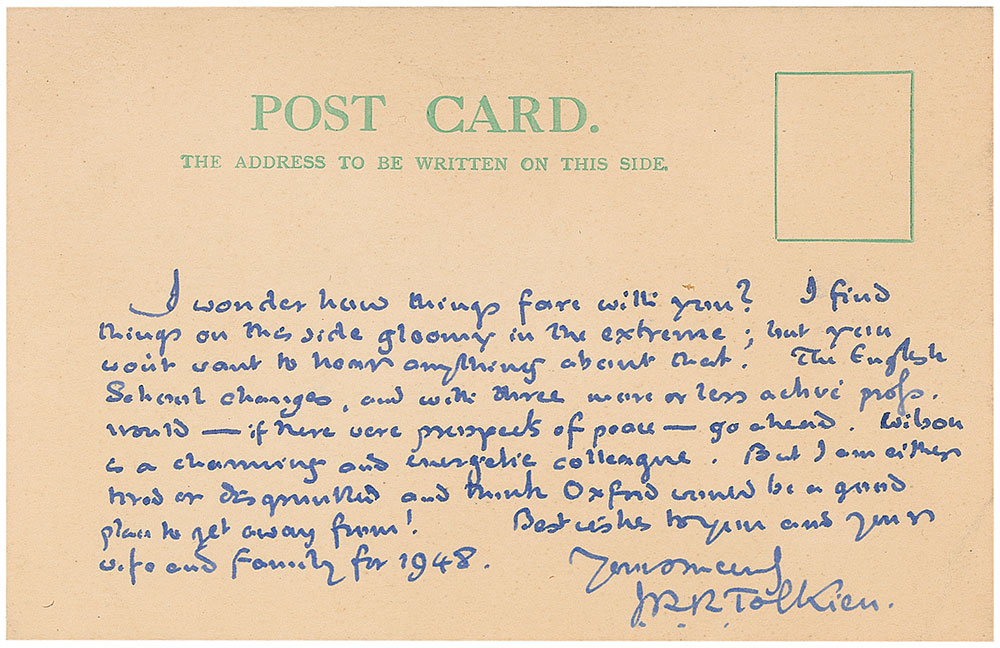 POST CARD.
THE ADDRESS TO BE WRITTEN ON THIS SIDE.
I wonder how things fare with you? I find
things on this side gloomy in the extreme; but you
won't want to hear anything about that! The English
School changes, and with three more or less active profs.
would — if there were prospects of peace — go ahead. Wilson
is a charming and energetic colleague. But I am either
tired or disgruntled and think Oxford would be a good
place to get away from! Best wishes to you and your
wife and family for 1948.
Yours sincerely
J.R.R. Tolkien.